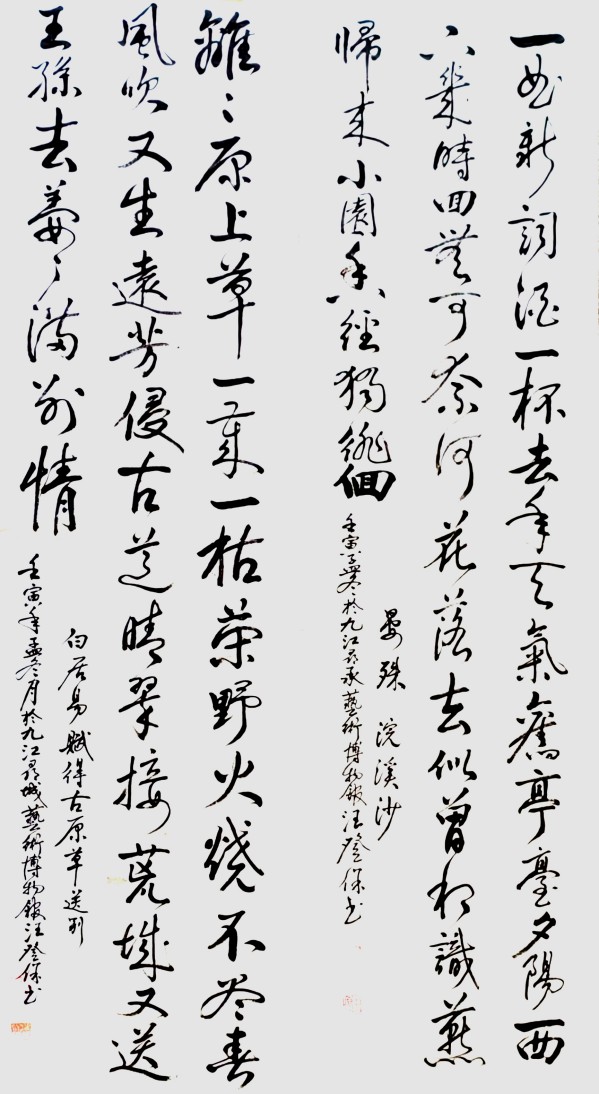 一曲新詞酒一杯去年天氣舊亭臺夕陽西
下幾時回無可奈何花落去似曾相識燕
歸来小園香徑獨徘徊
晏殊 浣溪沙
壬寅孟冬於九江尋承藝術博物館汪登保书
離〻原上草一歲一枯荣野火燒不盡春
風吹又生遠芳侵古道晴翠接荒城又送
王孫去萋〻滿别情
白居易賦得古原草送别
壬寅年孟冬月於九江尋城藝術博物館汪登保书